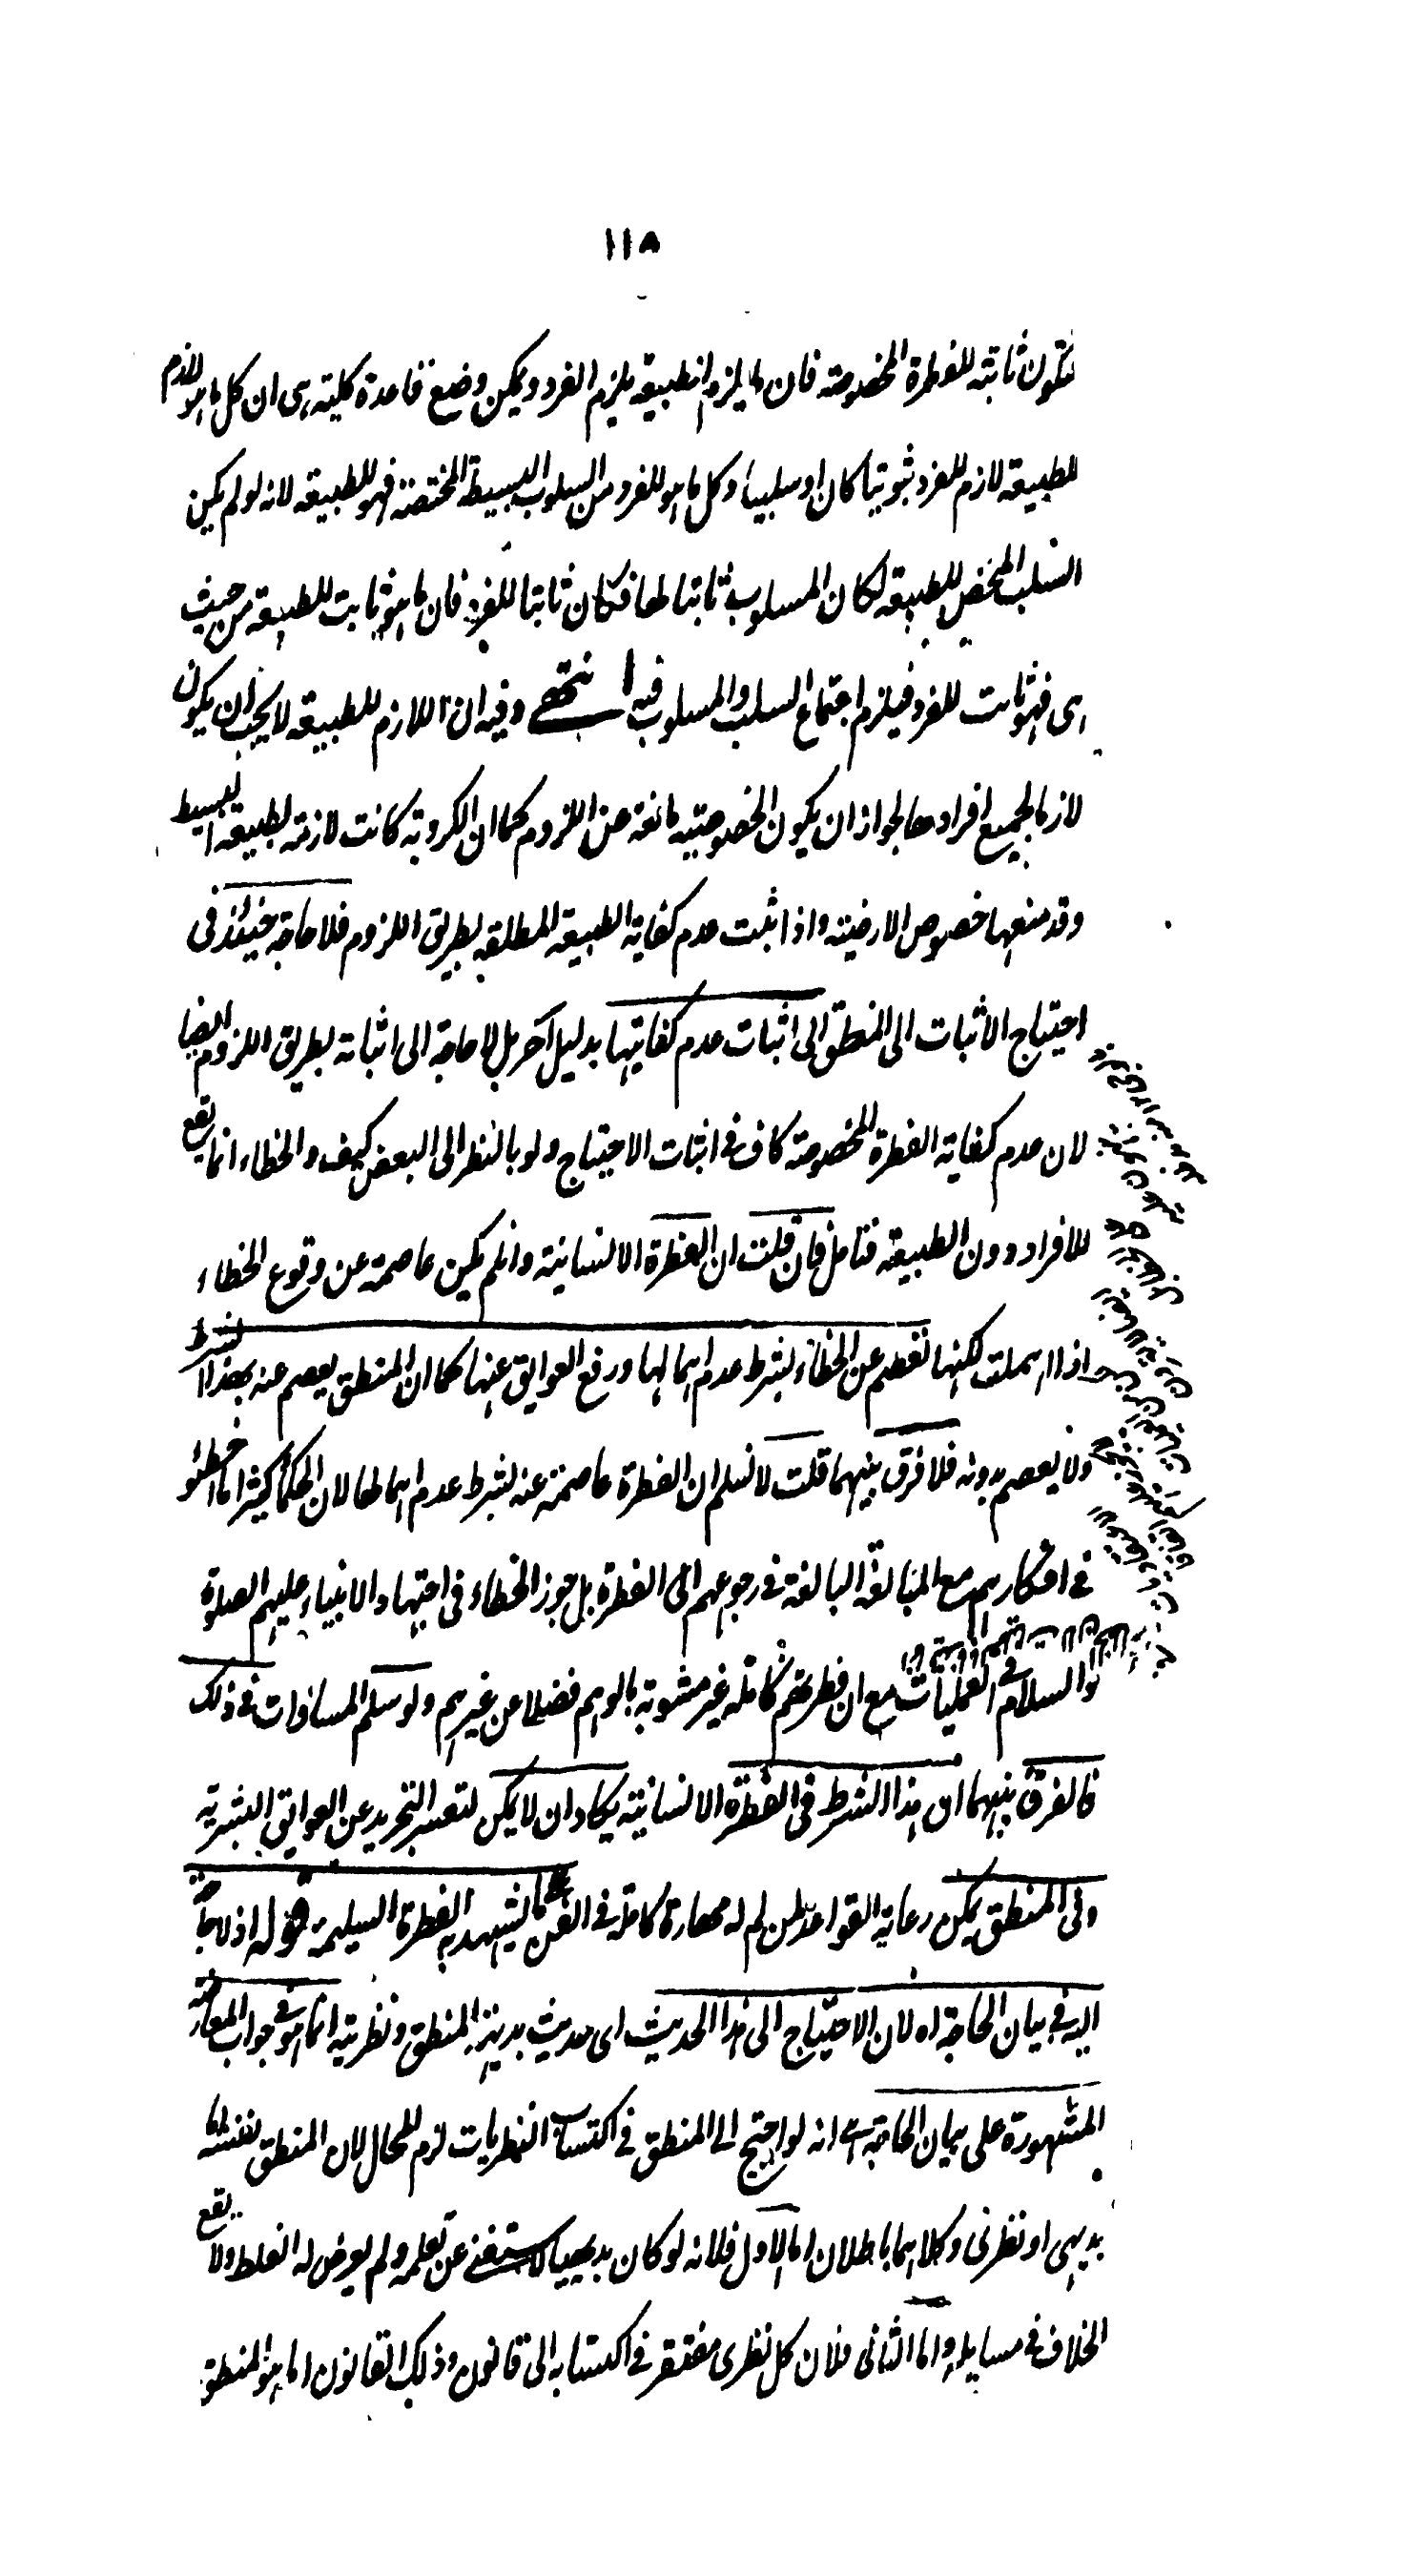 ١١٨
تكون ثابتة للفطرة المخصوصة فان ما يلزم الطبيعة يلزم الفرد ويمكن وضع قاعدة كلية هى ان كل ما هو لازم
للطبيعة لازم للفرد ثبوتيا كان او سلبيا وكل ما هو للفرد من السلوب البسيطة المختصة فهو للطبيعة لانه لو لم يكن
السلب المخص للطبيعة لكان المسلوب ثابتا لها فكان ثابتا للفرد فان ما هو ثابت للطبيعة من حيث
هى فهو ثابت للفرد فيلزم اجتماع السلب والمسلوب فيه انتهى وفيه ان اللازم للطبيعة لا يجب ان يكون
لازما لجميع افرادها لجواز ان يكون الخصوصية مانعة عن اللزوم كما ان الكروية كانت لازمة لطبيعة البسيط
وقد منعها خصوص الارضية واذا ثبت عدم كفاية الطبيعة المطلقة بطريق اللزوم فلا حاجة حينئذ فى
احتياج الاثبات الى المنطق الى اثبات عدم كفايتها بدليل آخر بل لا حاجة الى اثباته بطريق اللزوم ايضا
لان عدم كفاية الفطرة المخصوصة كاف فى اثبات الاحتياج ولو بالنظر الى البعض كيف والخطاء انما يقع
للافراد دون الطبيعة فتامل فان قلت ان الفطرة الانسانية وان لم يكن عاصمة عن وقوع الخطاء
اذا اهملت لكنها تعصم عن الخطاء بشرط عدم اهمالها ورفع العوايق عنها كما ان المنطق يعصم عنه بهذا الشرط
ولا يعصم بدونه فلا فرق بينهما قلت لا نسلم ان الفطرة عاصمة عنه بشرط عدم اهمالها لان الحكماء كثيرا ما اخطئو
فى افكارهم مع المبالغة البالغة فى رجوعهم الى الفطرة بل جوز الخطاء فى اجتهاد الانبياء عليهم الصلوة
والسلام فى العمليات مع ان فطرتهم كاملة غير مشوبة بالوهم فضلا عن غيرهم ولو سلم المساوات فى ذلك
فالفرق بينهما ان هذا الشرط فى الفطرة الانسانية يكاد ان لا يمكن لتعسر التجريد عن العوايق البشرية
وفى المنطق يمكن رعاية القواعد لمن له مهارة كاملة فى الفن كما يشهد به الفطرة السليمة قوله اذ لا حاجة
اليه فى بيان الحاجة اه لان الاحتياج الى هذا الحديث اى حديث بديهة المنطق ونظريته انما هو فى جواب المعارضة
المشهورة على بيان الحاجة اى انه لو احتيج الى المنطق فى اكتساب النظريات لزم المحال لان المنطق بنفسه اما
بديهى او نظرى وكلاهما باطلان اما الاول فلانه لو كان بديهيا لاستغنى عن تعلمه ولم يعرض له الغلط ولا يقع
الخلاف فى مسايله واما الثانى فلان كل نظرى مفتقر فى اكتسابه الى قانون وذلك القانون اما هو المنطق